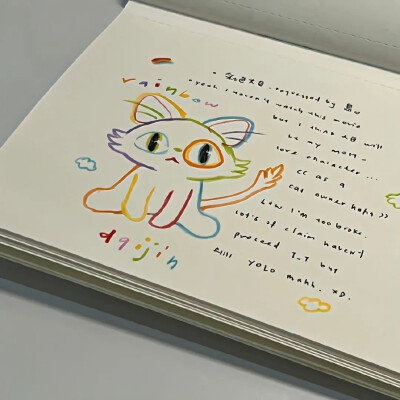 rainbow
requested by
yeah i haven't watch this movie
but i think 大臣 will
be my most-
love character...
cc as a
cat owner haha >>
btw i'm too broke.
lot's of claim haven't
proceed T-T but
still YOLO mahh. XD.
daijin